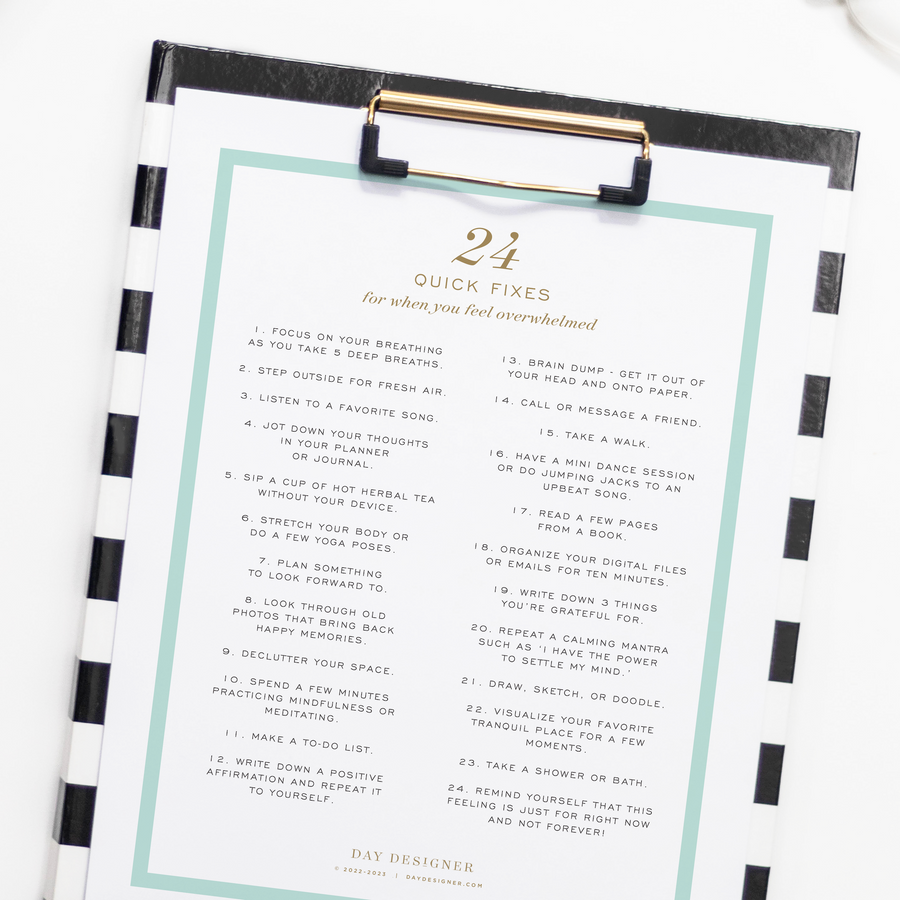 24
QUICK FIXES
for when you feel overwhelmed
1. FOCUS ON YOUR BREATHING
AS YOU TAKE 5 DEEP BREATHS.
2. STEP OUTSIDE FOR FRESH AIR.
3. LISTEN TO A FAVORITE SONG.
4. JOT DOWN YOUR THOUGHTS
IN YOUR PLANNER
OR JOURNAL.
5. SIP A CUP OF HOT HERBAL TEA
WITHOUT YOUR DEVICE.
6. STRETCH YOUR BODY OR
DO A FEW YOGA POSES.
7. PLAN SOMETHING
TO LOOK FORWARD TO.
8. LOOK THROUGH OLD
PHOTOS THAT BRING BACK
HAPPY MEMORIES.
9. DECLUTTER YOUR SPACE.
10. SPEND A FEW MINUTES
PRACTICING MINDFULNESS OR
MEDITATING.
11. MAKE A TO-DO LIST.
12. WRITE DOWN A POSITIVE
AFFIRMATION AND REPEAT IT
TO YOURSELF.
13. BRAIN DUMP - GET IT OUT OF
YOUR HEAD AND ONTO PAPER.
14. CALL OR MESSAGE A FRIEND.
15. TAKE A WALK.
16. HAVE A MINI DANCE SESSION
OR DO JUMPING JACKS TO AN
UPBEAT SONG.
17. READ A FEW PAGES
FROM A BOOK.
18. ORGANIZE YOUR DIGITAL FILES
OR EMAILS FOR TEN MINUTES.
19. WRITE DOWN 3 THINGS
YOU'RE GRATEFUL FOR.
20. REPEAT A CALMING MANTRA
SUCH AS 'I HAVE THE POWER
TO SETTLE MY MIND.'
21. DRAW, SKETCH, OR DOODLE.
22. VISUALIZE YOUR FAVORITE
TRANQUIL PLACE FOR A FEW
MOMENTS.
23. TAKE A SHOWER OR BATH.
24. REMIND YOURSELF THAT THIS
FEELING IS JUST FOR RIGHT NOW
AND NOT FOREVER!
DAY DESIGNER
© 2022-2023 | DAYDESIGNER.COM